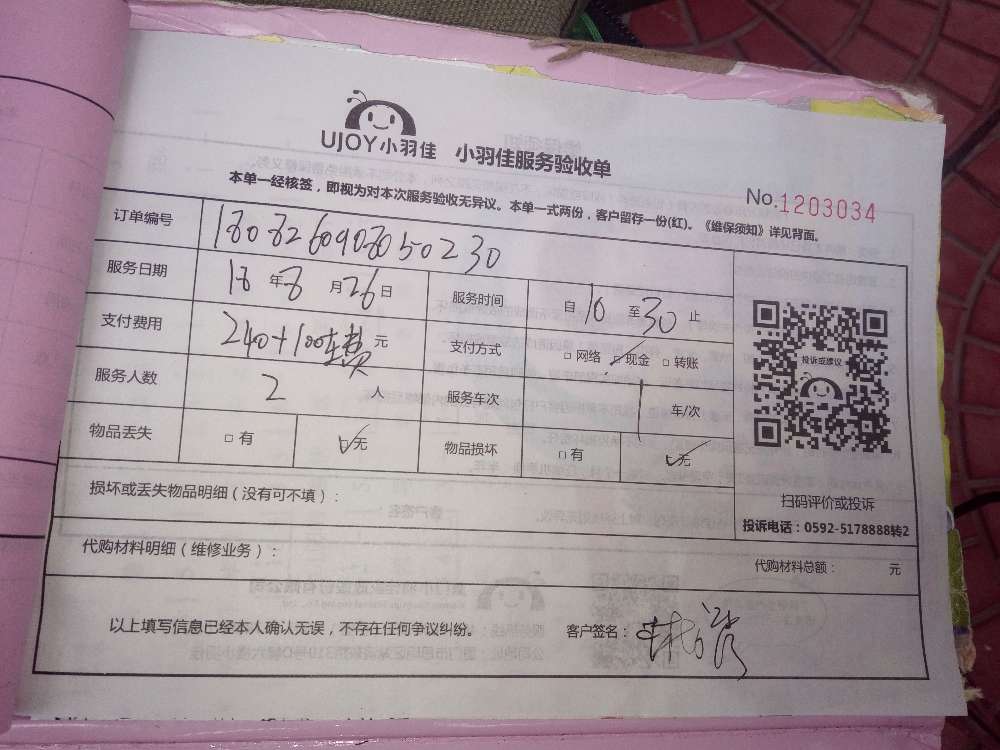 UJOY小羽佳 小羽佳服务验收单
本单一经核签，即视为对本次服务验收无异议。本单一式两份，客户留存一份(红)。《维保须知》详见背面。
No.1203034
订单编号 1808260908050230
服务日期 18 年 8 月 26 日 服务时间 自 10 至 30 止
支付费用 240+100车费 元 支付方式 □ 网络 ☑ 现金 □ 转账
服务人数 2 人 服务车次 1 车/次
物品丢失 □ 有 ☑ 无 物品损坏 □ 有 ☑ 无
投诉或建议
扫码评价或投诉
投诉电话：0592-5178888转2
损坏或丢失物品明细（没有可不填）：
代购材料明细（维修业务）： 代购材料总额： 元
以上填写信息已经本人确认无误，不存在任何争议纠纷。 客户签名：